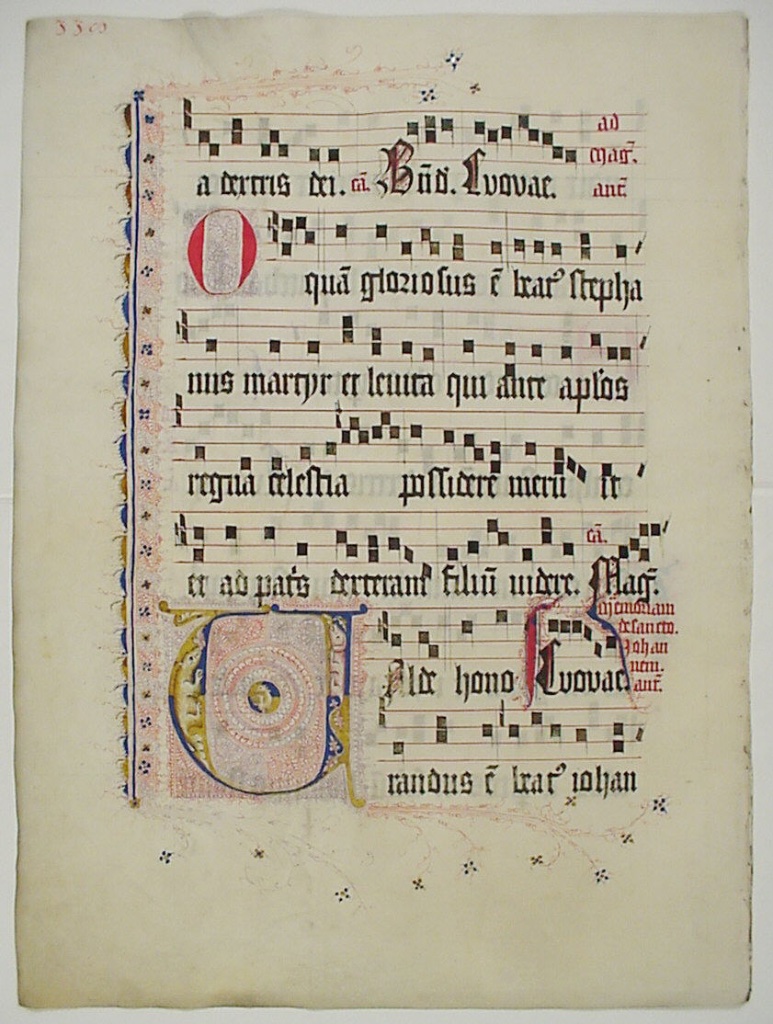 a dextris dei. cā. Bñd. Euouae. ad mag̃. ant̃.
O quā gloriosus ē beatꝰ stepha
nus martyr et leuita qui ante apl'os
regna celestia possidere meruit
et ad pat̃s dexteram filiū uidere. cā. Mag̃.
Memoriam de sancto. Johannem. ant̃.
Valde hono Euouae.
randus ē beatꝰ iohan